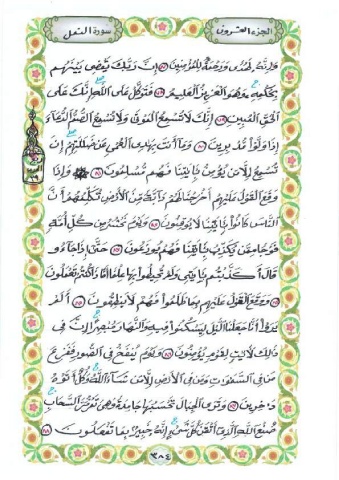 الجزء العشرون
سورة النمل
وَإِنَّهُۥ لَهُدًى وَرَحْمَةٌ لِّلْمُؤْمِنِينَ ٧٧ إِنَّ رَبَّكَ يَقْضِى بَيْنَهُم
بِحُكْمِهِۦ وَهُوَ ٱلْعَزِيزُ ٱلْعَلِيمُ ٧٨ فَتَوَكَّلْ عَلَى ٱللَّهِ إِنَّكَ عَلَى
ٱلْحَقِّ ٱلْمُبِينِ ٧٩ إِنَّكَ لَا تُسْمِعُ ٱلْمَوْتَىٰ وَلَا تُسْمِعُ ٱلصُّمَّ ٱلدُّعَآءَ
إِذَا وَلَّوْا۟ مُدْبِرِينَ ٨٠ وَمَآ أَنتَ بِهَٰدِى ٱلْعُمْىِ عَن ضَلَٰلَتِهِمْ إِن
تُسْمِعُ إِلَّا مَن يُؤْمِنُ بِـَٔايَٰتِنَا فَهُم مُّسْلِمُونَ ٨١ ۞ وَإِذَا
وَقَعَ ٱلْقَوْلُ عَلَيْهِمْ أَخْرَجْنَا لَهُمْ دَآبَّةً مِّنَ ٱلْأَرْضِ تُكَلِّمُهُمْ أَنَّ
ٱلنَّاسَ كَانُوا۟ بِـَٔايَٰتِنَا لَا يُوقِنُونَ ٨٢ وَيَوْمَ نَحْشُرُ مِن كُلِّ أُمَّةٍ
فَوْجًا مِّمَّن يُكَذِّبُ بِـَٔايَٰتِنَا فَهُمْ يُوزَعُونَ ٨٣ حَتَّىٰٓ إِذَا جَآءُو
قَالَ أَكَذَّبْتُم بِـَٔايَٰتِى وَلَمْ تُحِيطُوا۟ بِهَا عِلْمًا أَمَّاذَا كُنتُمْ تَعْمَلُونَ
٨٤ وَوَقَعَ ٱلْقَوْلُ عَلَيْهِم بِمَا ظَلَمُوا۟ فَهُمْ لَا يَنطِقُونَ ٨٥ أَلَمْ
يَرَوْا۟ أَنَّا جَعَلْنَا ٱلَّيْلَ لِيَسْكُنُوا۟ فِيهِ وَٱلنَّهَارَ مُبْصِرًا إِنَّ فِى
ذَٰلِكَ لَـَٔايَٰتٍ لِّقَوْمٍ يُؤْمِنُونَ ٨٦ وَيَوْمَ يُنفَخُ فِى ٱلصُّورِ فَفَزِعَ
مَن فِى ٱلسَّمَٰوَٰتِ وَمَن فِى ٱلْأَرْضِ إِلَّا مَن شَآءَ ٱللَّهُ وَكُلٌّ أَتَوْهُ
دَٰخِرِينَ ٨٧ وَتَرَى ٱلْجِبَالَ تَحْسَبُهَا جَامِدَةً وَهِىَ تَمُرُّ مَرَّ ٱلسَّحَابِ
صُنْعَ ٱللَّهِ ٱلَّذِىٓ أَتْقَنَ كُلَّ شَىْءٍ إِنَّهُۥ خَبِيرٌۢ بِمَا تَفْعَلُونَ ٨٨
٣٨٤